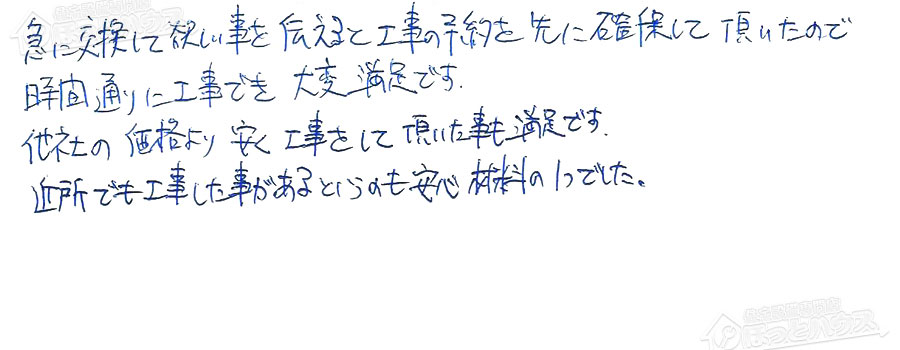 急に交換して欲しい事を伝えると工事の予約を先に確保して頂いたので
時間通りに工事でき 大変満足です.
他社の価格より安く工事をして頂いた事も満足です.
近所でも工事した事があるというのも安心材料の1つでした。
住宅設備専門店
ほっとハウス